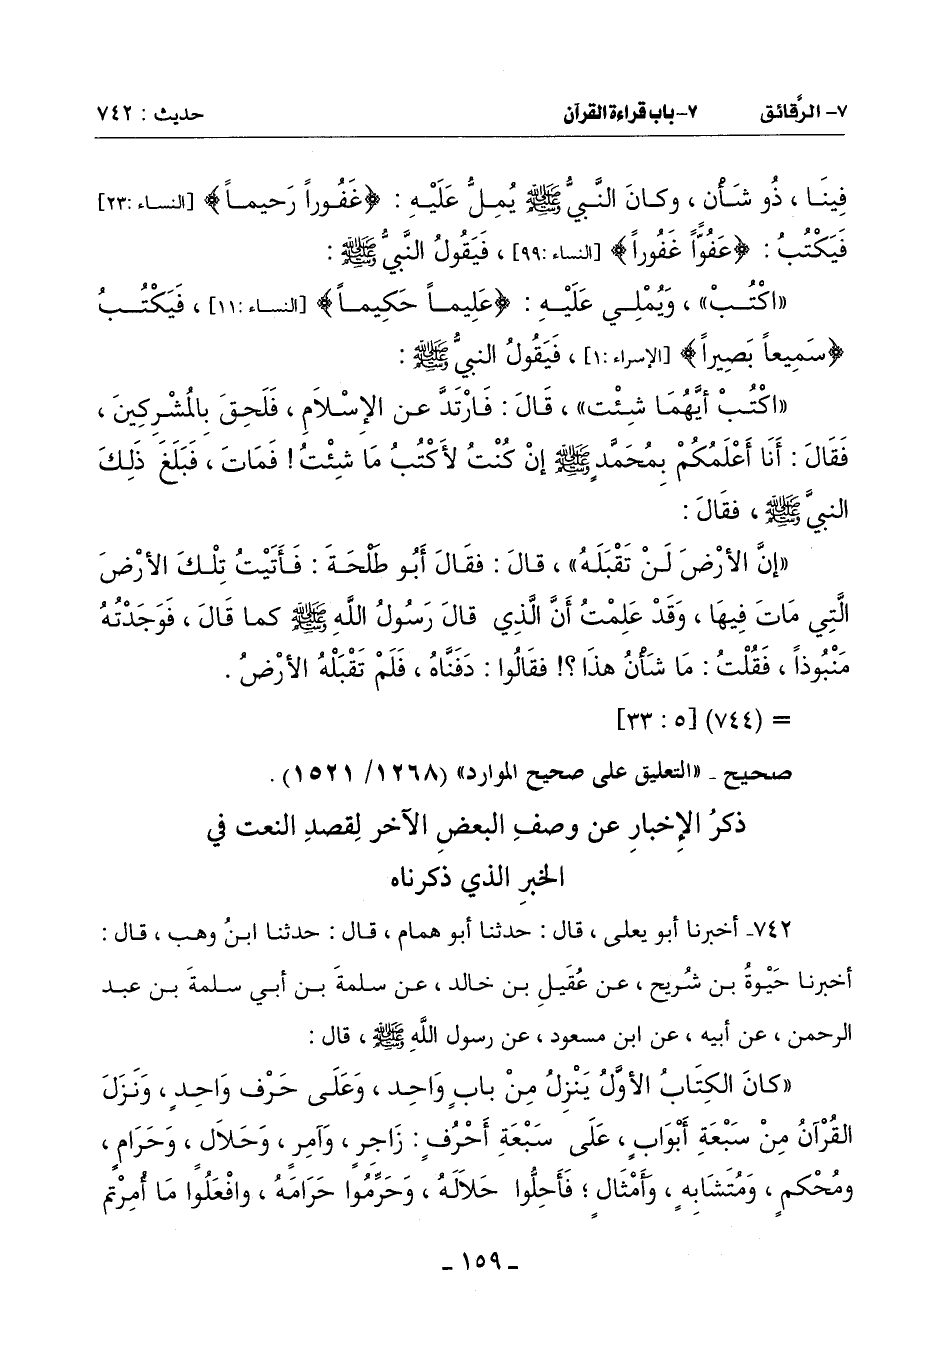 ٧- الرَّقائق ٧-باب قراءة القرآن حديث : ٧٤٢
فِينَا ، ذُو شَأْن ، وكانَ النَّبيُّ ﷺ يُمِلُّ عَلَيْهِ : ﴿غَفُوراً رَحيماً﴾ [النساء :٢٣]
فَيَكْتُبُ : ﴿عَفُوّاً غَفُوراً﴾ [النساء :٩٩] ، فَيَقُولُ النَّبيُّ ﷺ :
«اكْتُبْ» ، وَيُمْلِي عَلَيْهِ : ﴿عَلِيماً حَكِيماً﴾ [النساء :١١] ، فَيَكْتُبُ
﴿سَمِيعاً بَصِيراً﴾ [الإسراء :١] ، فَيَقُولُ النبيُّ ﷺ :
«اكْتُبْ أيَّهُمَا شئْت» ، قَالَ : فَارْتَدَّ عن الإسْلَامِ ، فَلَحِقَ بِالمُشْركِينَ ،
فَقَالَ : أَنَا أَعْلَمُكُمْ بِمُحَمَّدٍ ﷺ إنْ كُنْتُ لأَكْتُبُ مَا شئْتُ ! فَمَاتَ ، فَبَلَغَ ذَلِكَ
النبيَّ ﷺ ، فقَالَ :
«إنَّ الأرْضَ لَنْ تَقْبَلَهُ» ، قالَ : فقَالَ أَبُو طَلْحَةَ : فَأَتَيْتُ تِلْكَ الأرْضَ
الَّتِي مَاتَ فِيهَا ، وَقَدْ عَلِمْتُ أنَّ الَّذِي قالَ رَسُولُ اللَّهِ ﷺ كما قَالَ ، فَوَجَدْتُهُ
مَنْبُوذاً ، فَقُلْتُ : مَا شَأْنُ هذَا ؟! فقَالُوا : دَفَنَّاهُ ، فَلَمْ تَقْبَلْهُ الأرْضُ .
= (٧٤٤) [٥ : ٣٣]
صحيح ـ «التعليق على صحيح الموارد» (١٢٦٨/ ١٥٢١) .
ذكرُ الإخبارِ عن وصفِ البعضِ الآخر لِقصدِ النعت في
الخبرِ الذي ذكرناه
٧٤٢ـ أخبرنا أبو يعلى ، قال : حدثنا أبو همام ، قال : حدثنا ابنُ وهب ، قال :
أخبرنا حَيْوةُ بن شُريح ، عن عُقَيل بن خالد ، عن سلمةَ بن أبي سلمةَ بن عبد
الرحمن ، عن أبيه ، عن ابن مسعود ، عن رسول اللَّهِ ﷺ ، قال :
«كانَ الكتَابُ الأوَّلُ يَنْزِلُ مِنْ بابٍ وَاحِد ، وَعَلَى حَرْف وَاحِدٍ ، وَنَزَلَ
القُرْآنُ مِنْ سَبْعَةِ أبْوَابٍ ، عَلَى سَبْعَةِ أحْرُفٍ : زَاجرٍ ، وَآمرٍ ، وَحَلَالٍ ، وَحَرَامٍ ،
ومُحْكَمٍ ، وَمُتَشَابِهٍ ، وَأَمْثَالٍ ؛ فَأَحِلُّوا حَلَالَهُ ، وَحَرِّمُوا حَرَامَهُ ، وافْعَلُوا مَا أُمِرْتُمْ
ـ ١٥٩ ـ